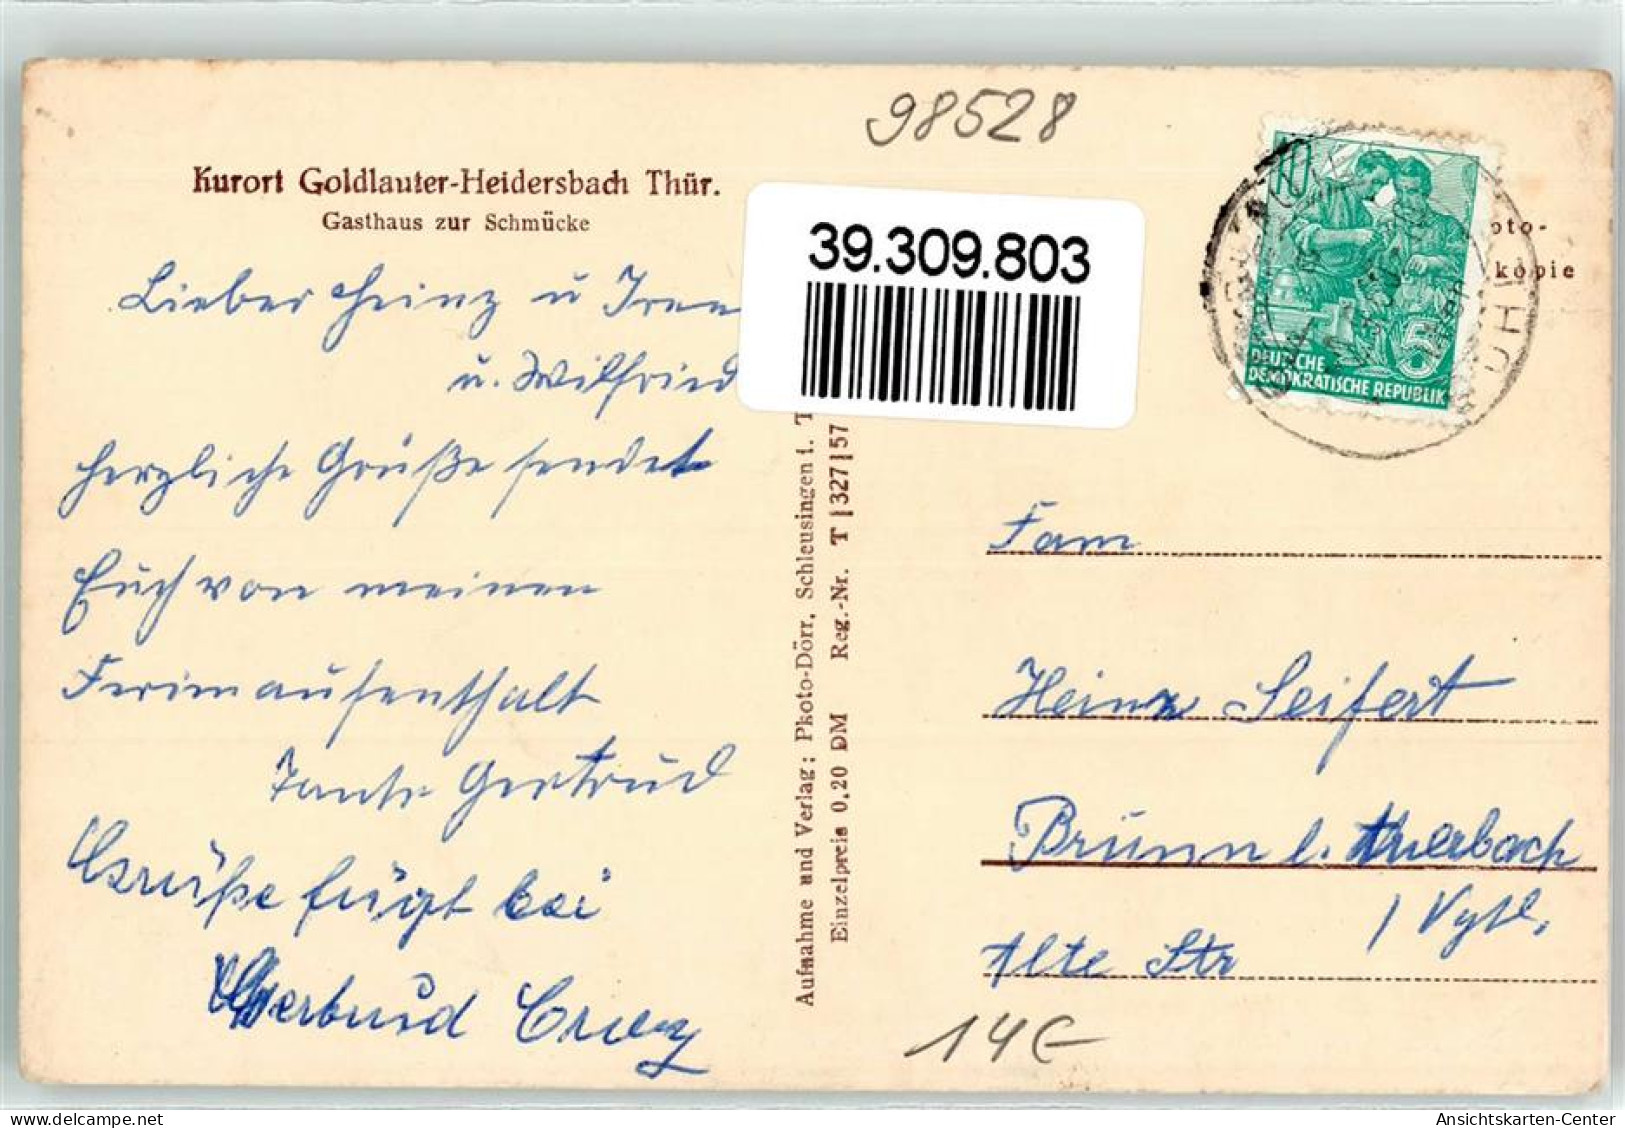 98528
Kurort Goldlauter-Heidersbach Thür.
Gasthaus zur Schmücke
39.309.803
oto-
kopie
DEUTSCHE
DEMOKRATISCHE REPUBLIK
5
SUHL
Lieber Heinz u Iren
u. Wilfried
herzliche Grüße sendet
Euch von meinen
Ferienaufenthalt
Tante Gertrud
Grüße fügt bei
Aufnahme und Verlag: Photo-Dörr, Schleusingen i. T
Einzelpreis 0,20 DM Reg.-Nr. T|327|57
Fam
Heinz Seifert
Brünn b. Auerbach
/ Vgtl.
Alte Str
14€
Ansichtskarten-Center